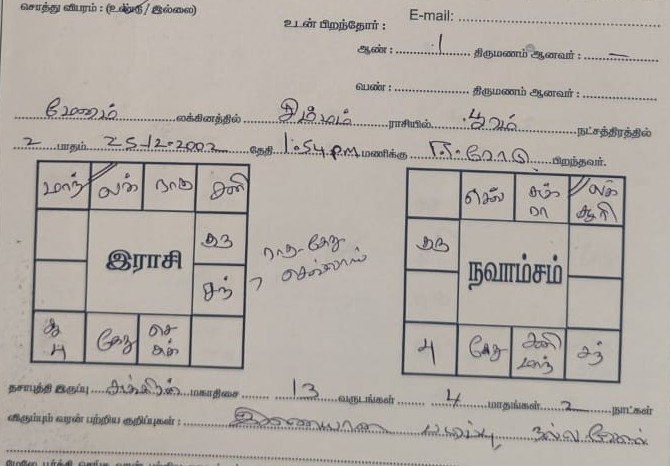 சொத்து விபரம் : (உண்டு / இல்லை)
உடன் பிறந்தோர் : E-mail:
ஆண் : 1 திருமணம் ஆனவர் : –
பெண் : திருமணம் ஆனவர் :
மேஷம் லக்கினத்தில் சிம்மம் ராசியில் பூரம் நட்சத்திரத்தில்
2 பாதம் 25-12-2002 தேதி 1:54 PM மணிக்கு ஈரோடு பிறந்தவர்.
மாந் லக் ராகு சனி
செவ் சுக் ரா லக் சூரி
குரு
குரு
இராசி
ராகு-கேது
செவ்வாய்
நவாம்சம்
சந்
சூ பு கேது செ சுக்
பு கேது சனி மாந் சந்
தசாபுத்தி இருப்பு சுக்கிரன் மகாதிசை 13 வருடங்கள் 4 மாதங்கள் 2 நாட்கள்
விரும்பும் வரன் பற்றிய குறிப்புகள் : இணையான படிப்பு, நல்ல வேலை